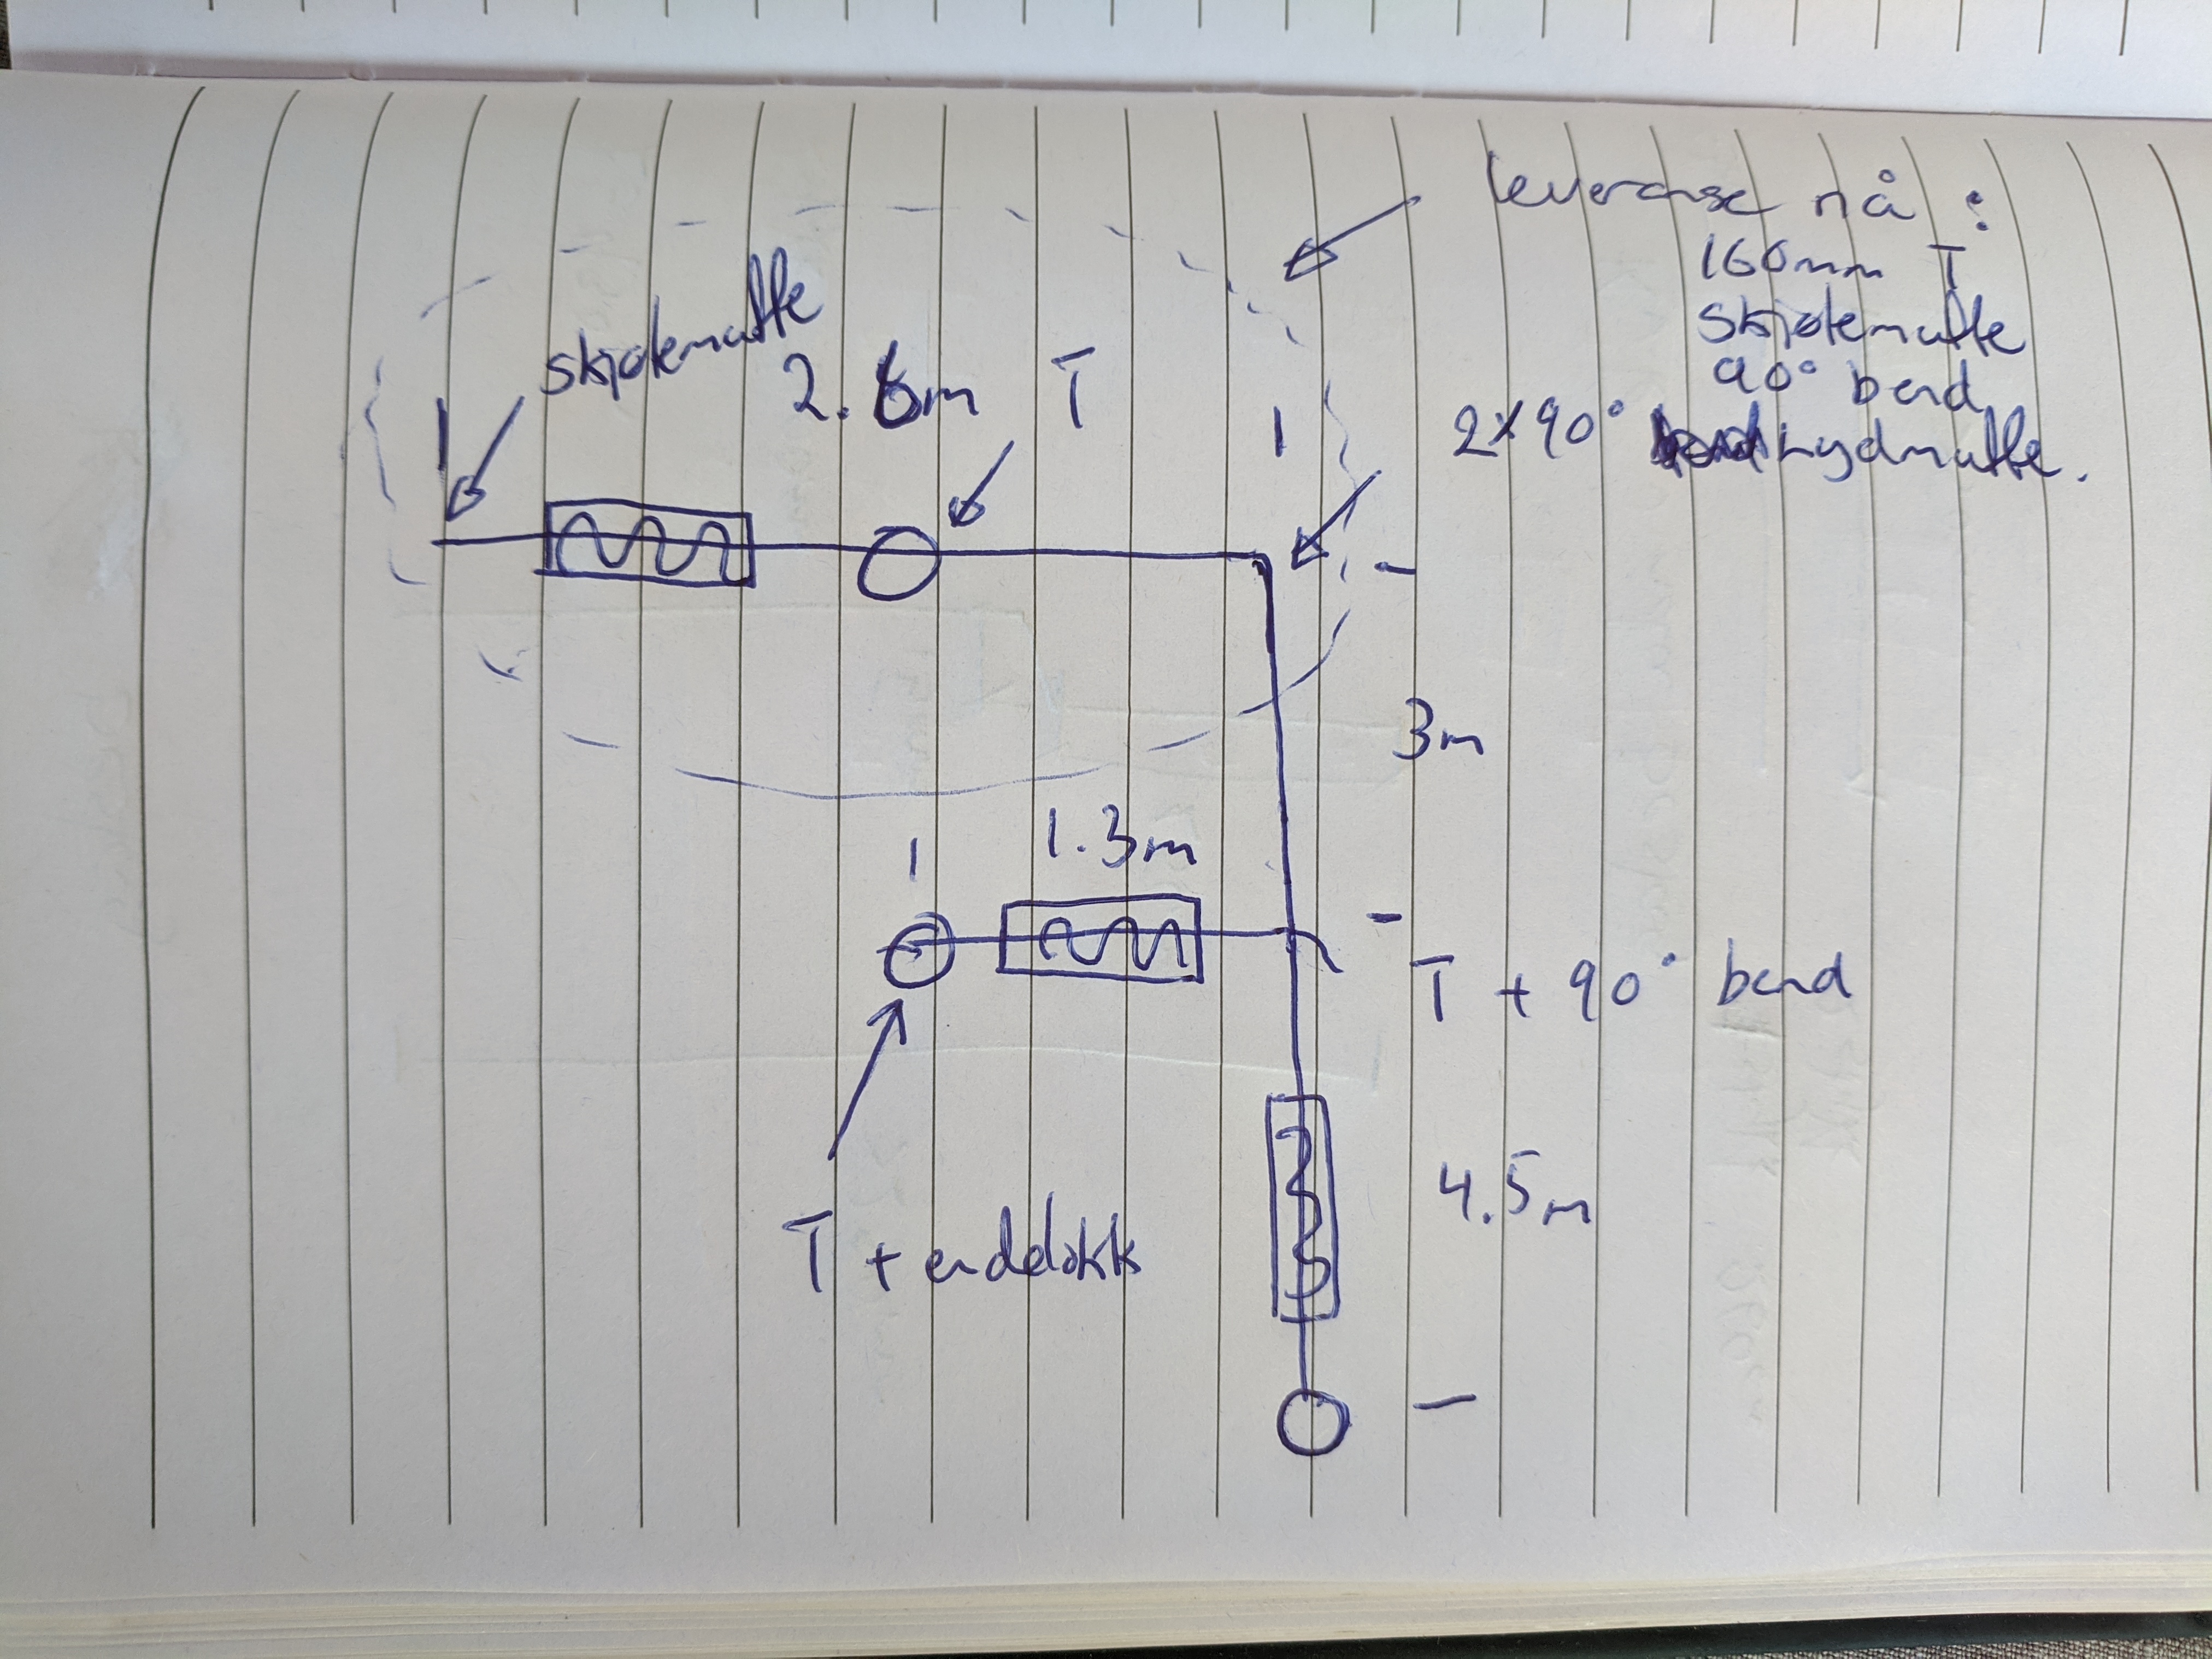 leveranse nå :
160mm T
skjøtemuffe
90° bend
2x90° Lydmuffe.
skjøtemuffe
2.6m T
3m
1.3m
T + 90° bend
T + endelokk
4.5m